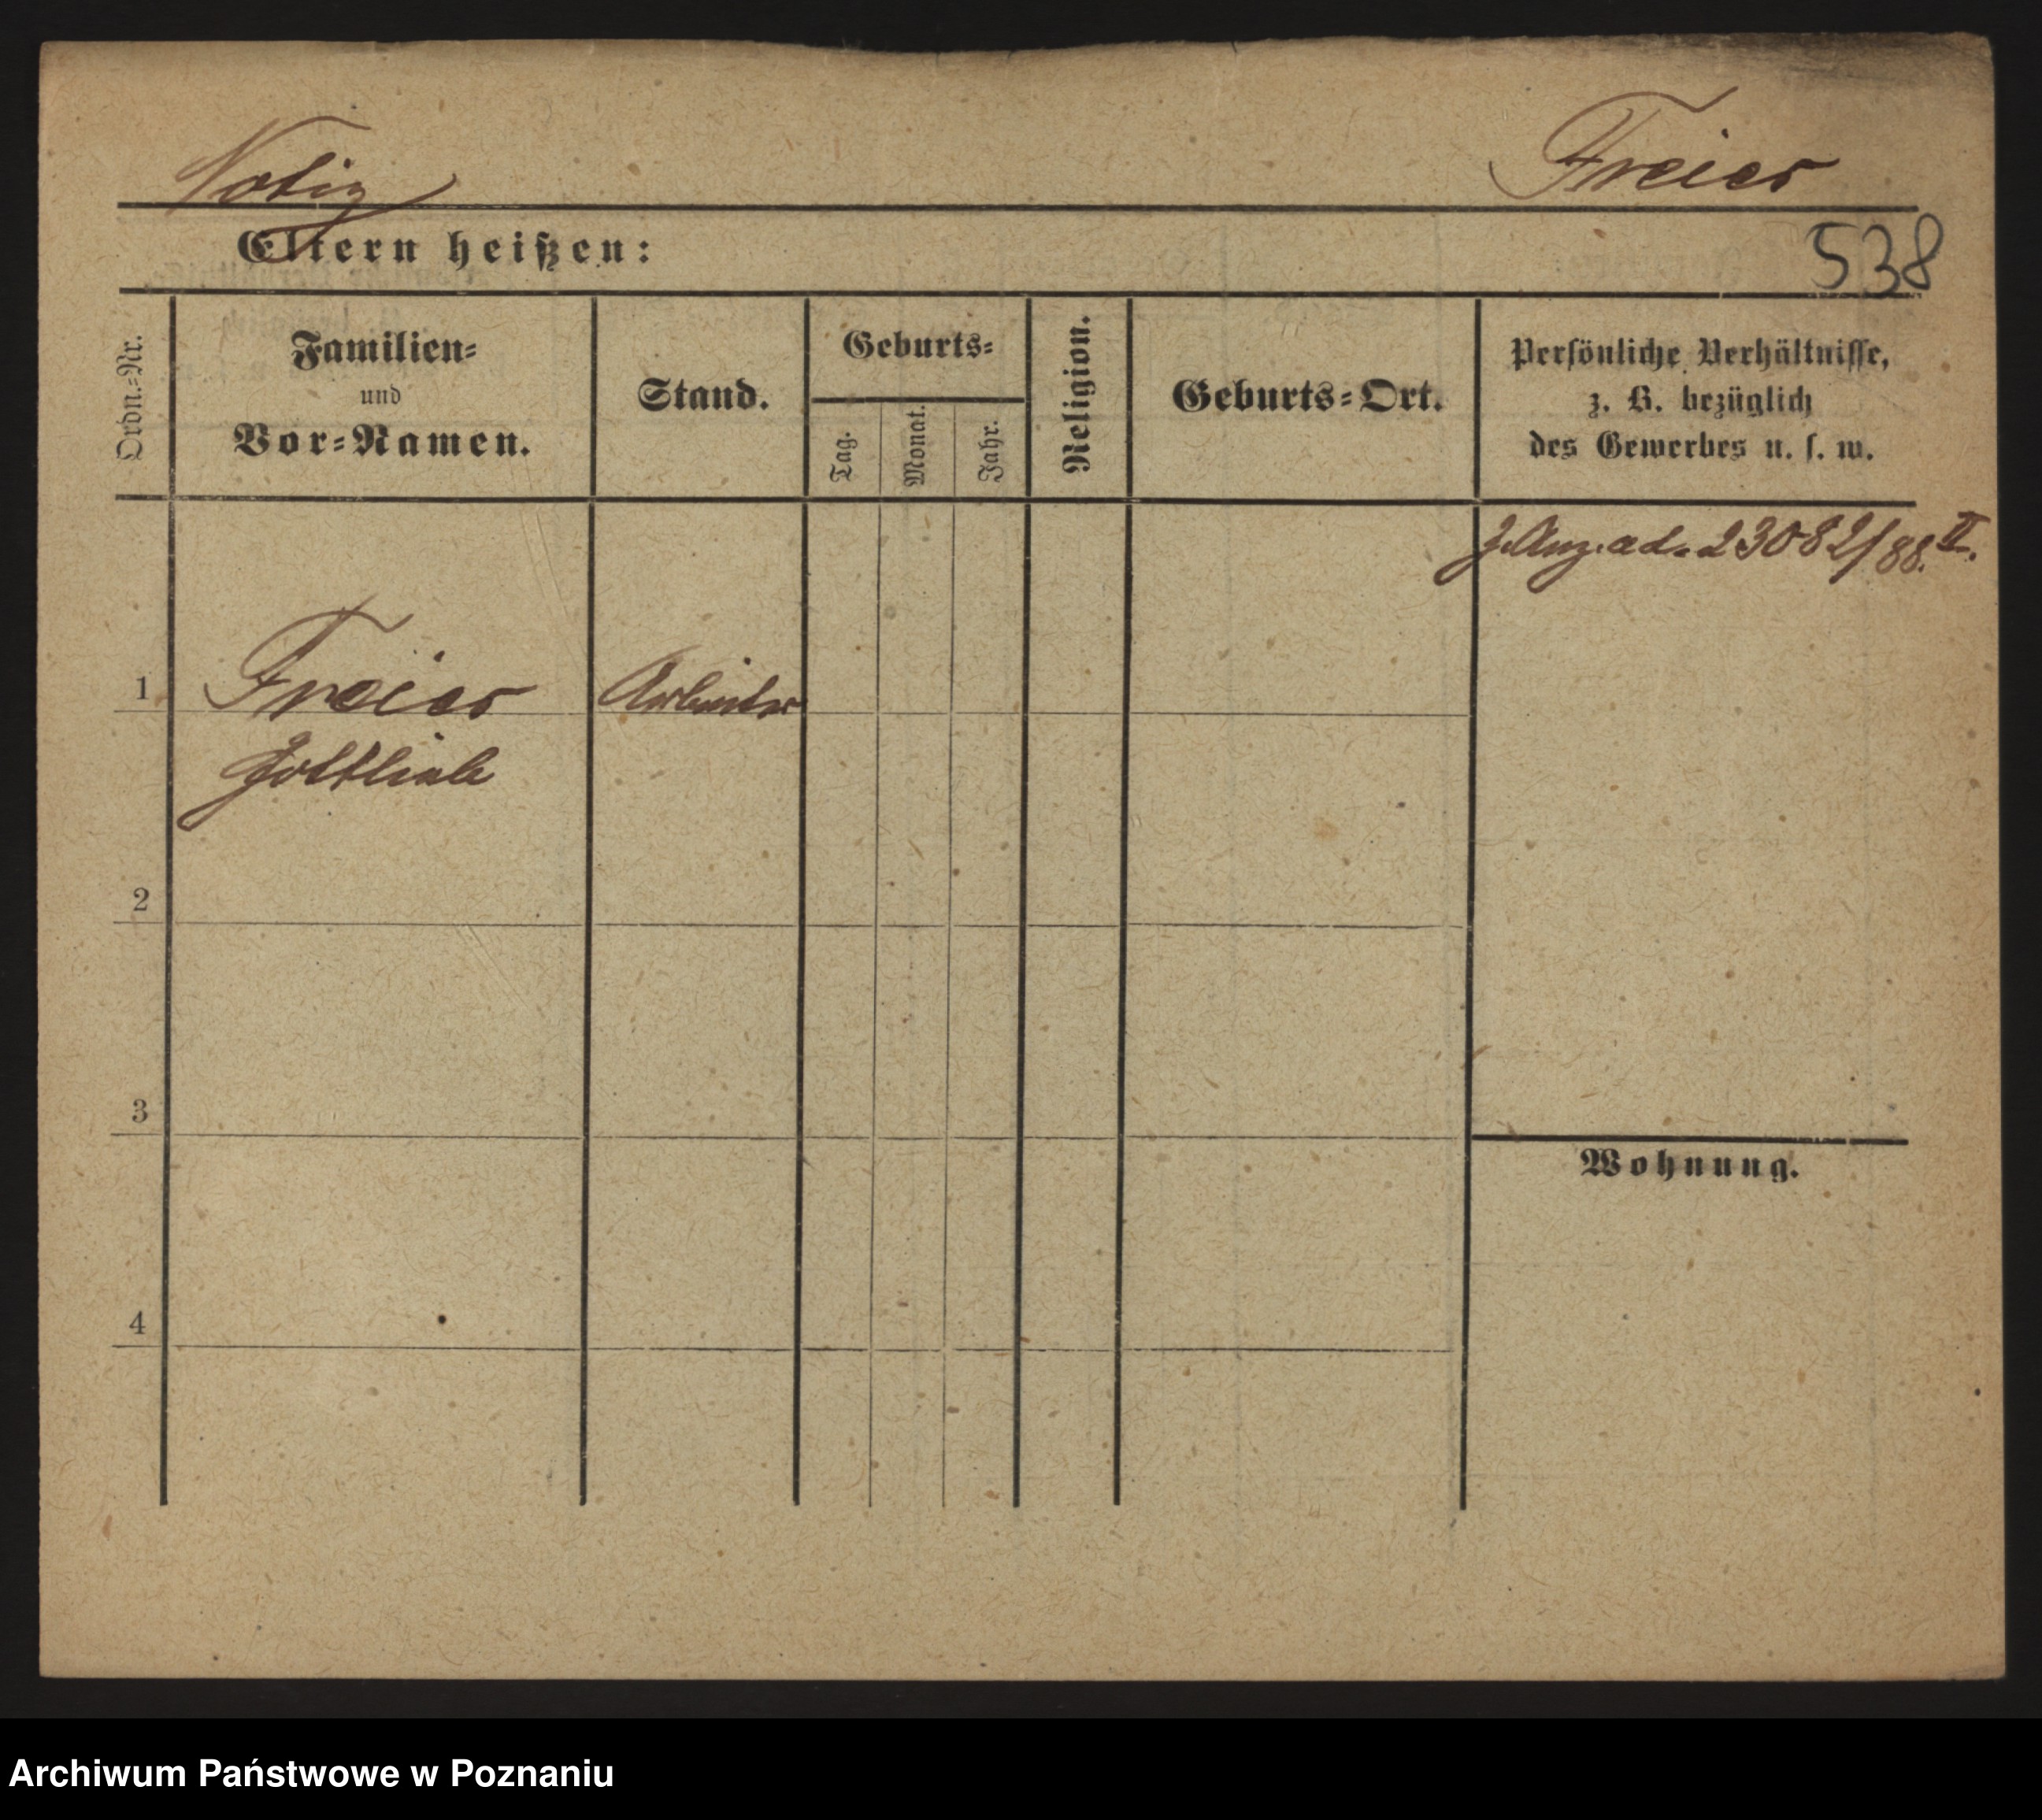 Notiz
Freier
Eltern heißen:
538
Ordn.=Nr.
Familien=
und
Vor=Namen.
Stand.
Geburts=
Tag.
Monat.
Jahr.
Religion.
Geburts=Ort.
Persönliche Verhältnisse,
z. B. bezüglich
des Gewerbes u. s. w.
ad. 23082/88. II.
1
Freier
Arbeiter
Gottlieb
2
3
Wohnung.
4
Archiwum Państwowe w Poznaniu